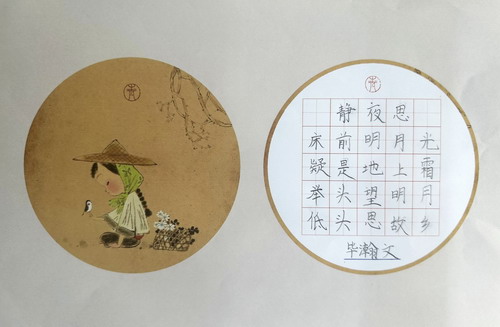 静夜思
床前明月光
疑是地上霜
举头望明月
低头思故乡
毕瀚文